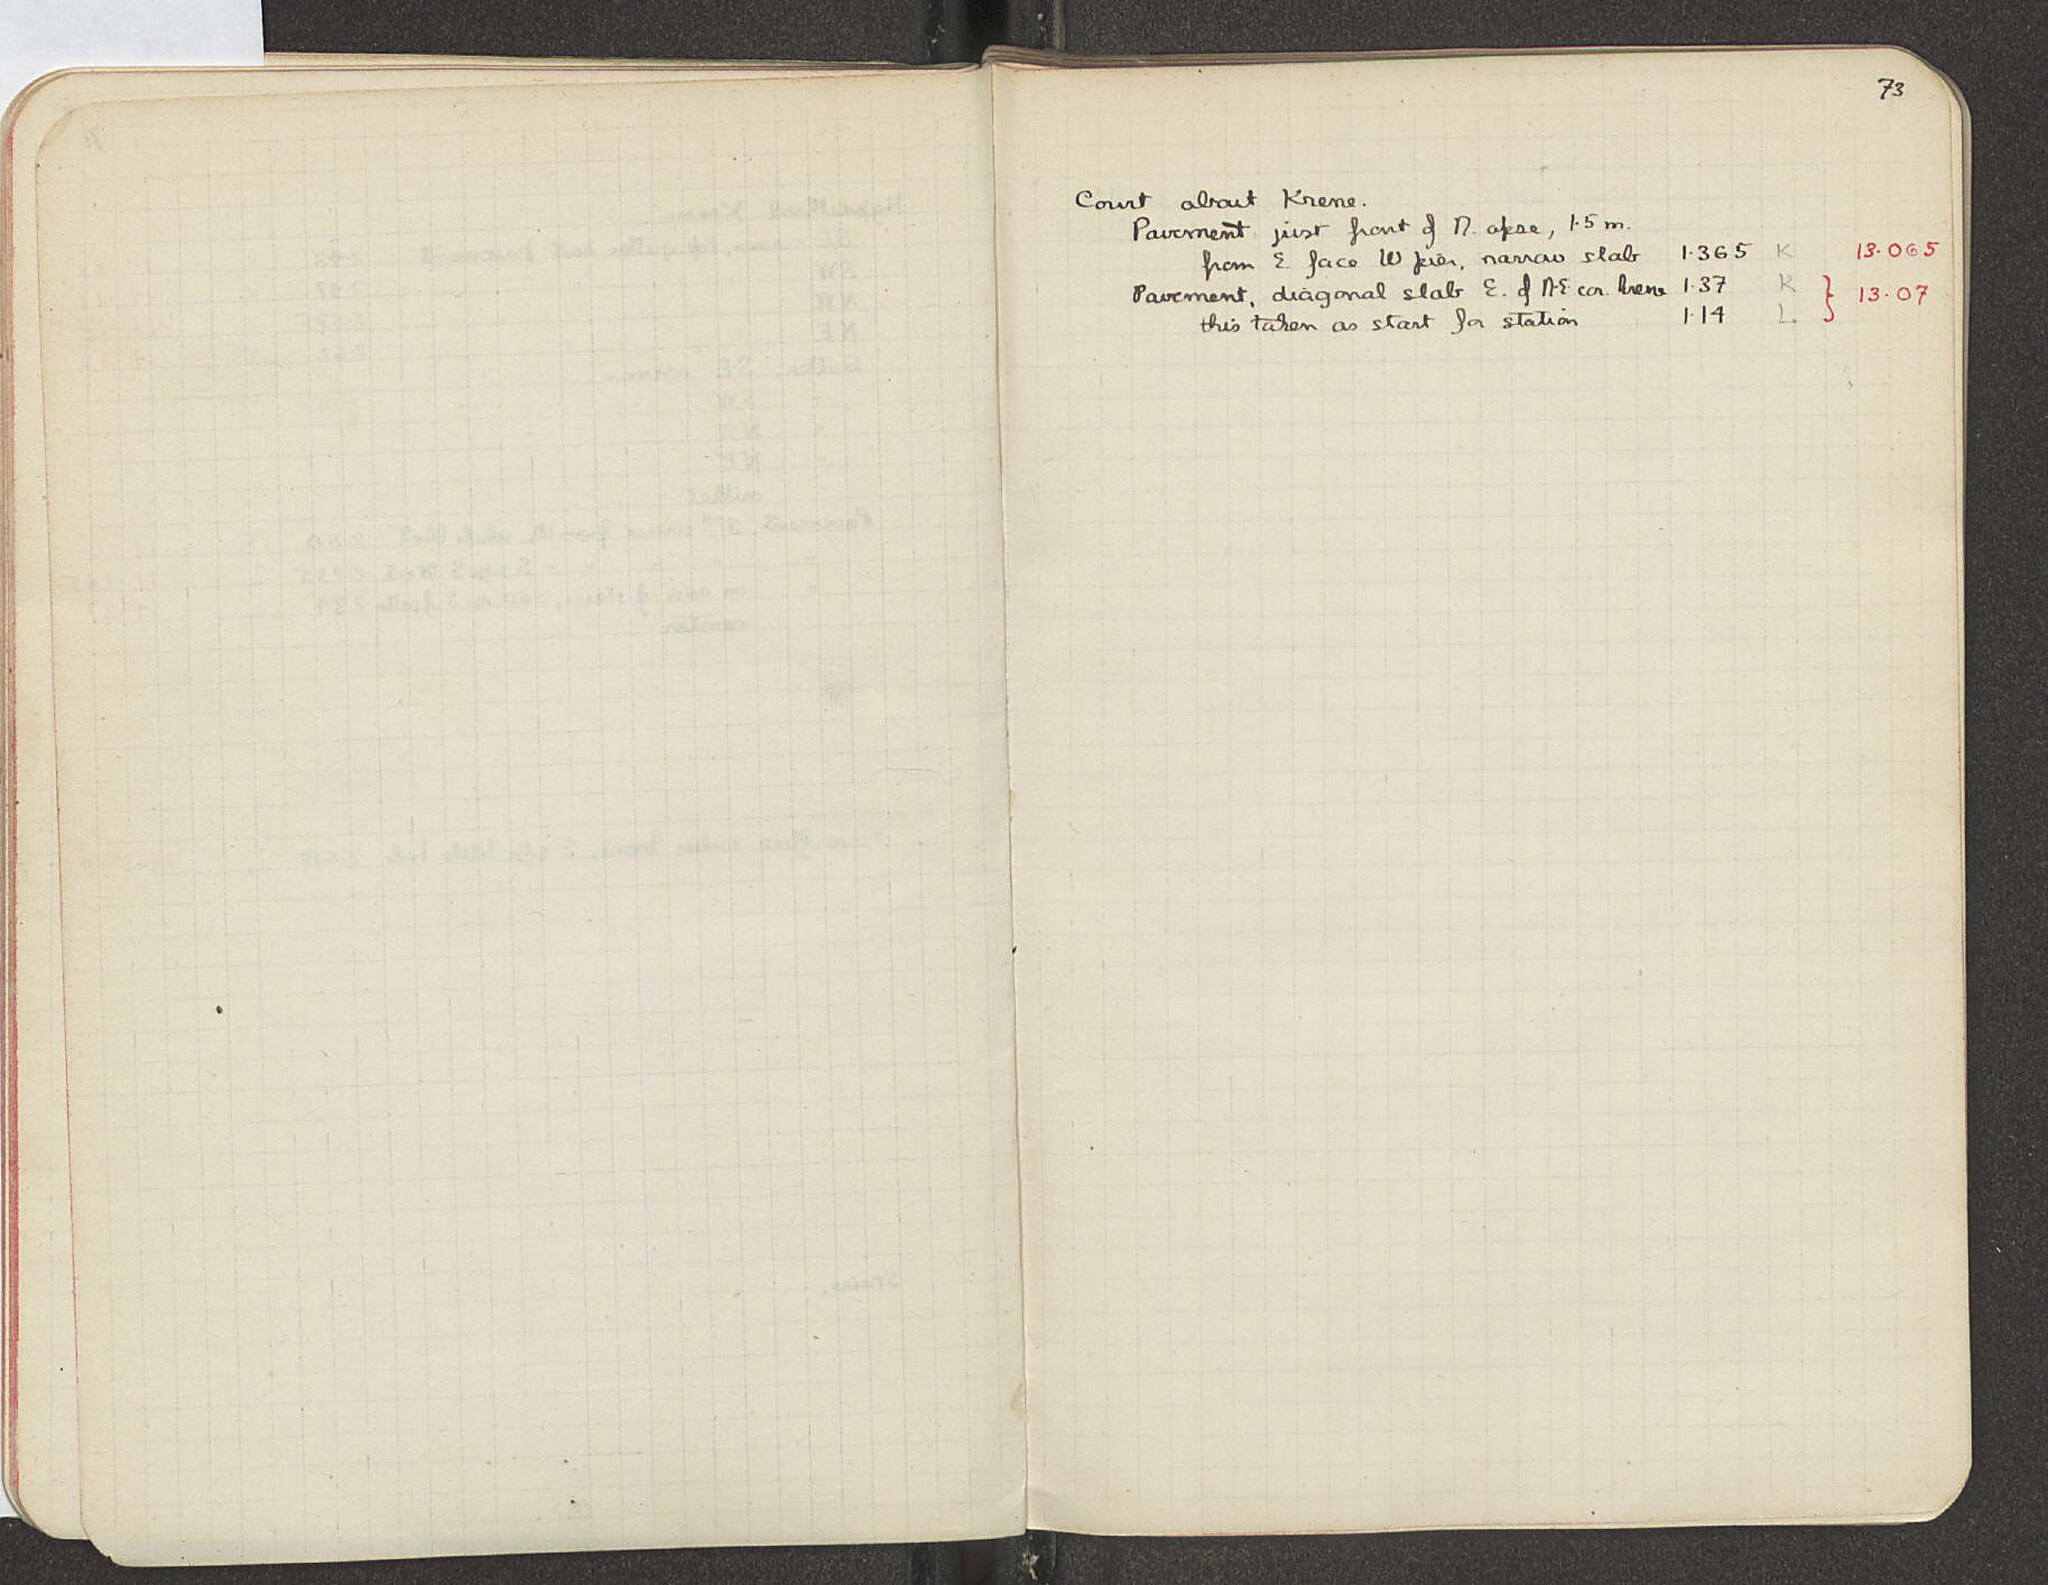 73
Court about Krene.
Pavement just front of N. apse, 1.5 m.
from E. face W pier, narrow slab 1.365 K 13.065
Pavement, diagonal slab E. of N.E. cor. Krene 1.37 K } 13.07
this taken as start for station 1.14 L.